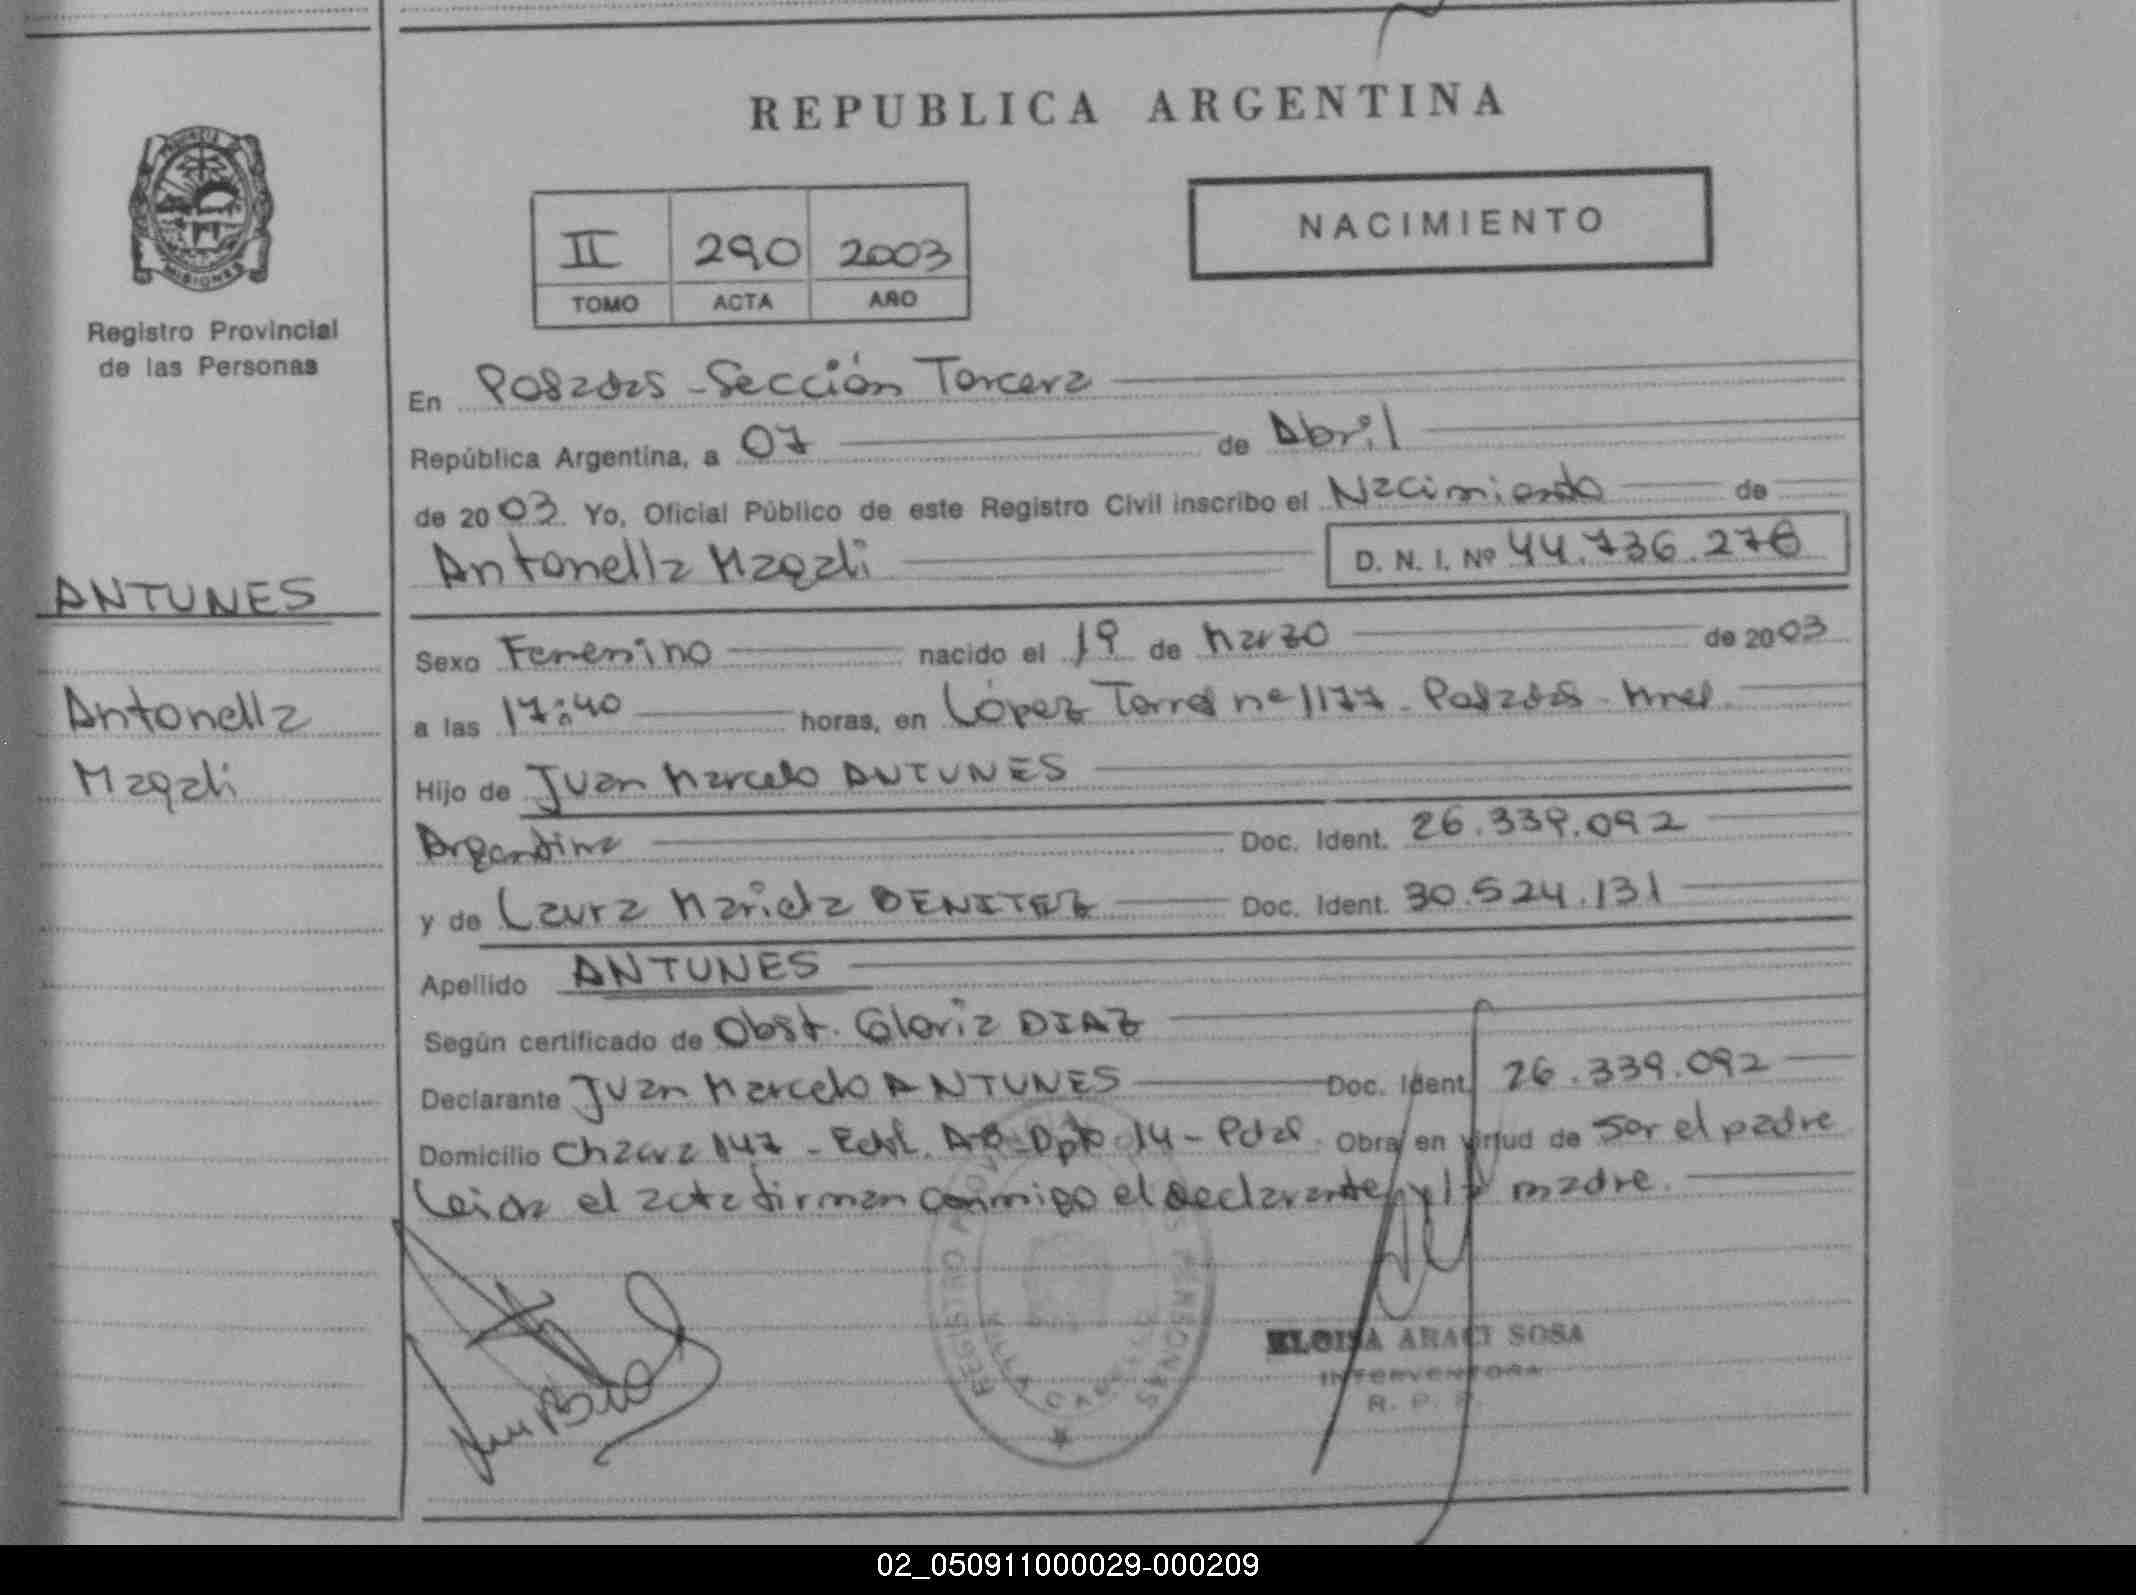 REPUBLICA ARGENTINA
NACIMIENTO
II 290 2003
TOMO ACTA AÑO
Registro Provincial
de las Personas
MISIONES
ANTUNES
Antonella
Magali
En Posadas - Sección Tercera
República Argentina, a 07 de Abril
de 2003 Yo, Oficial Público de este Registro Civil inscribo el Nacimiento de
Antonella Magali D. N. I. Nº 44.736.276
Sexo Femenino nacido el 19 de Marzo de 2003
a las 17:40 horas, en López Torres nº 1177 - Posadas - Mnes.
Hijo de Juan Marcelo ANTUNES
Argentina Doc. Ident. 26.339.092
y de Laura Mariela BENITEZ Doc. Ident. 30.524.131
Apellido ANTUNES
Según certificado de Obst. Gloria DIAZ
Declarante Juan Marcelo ANTUNES Doc. Ident. 26.339.092
Domicilio Chacra 147 - Edif. Dpto 14 - Pdas. Obra en virtud de ser el padre
Leida el acta firman conmigo el declarante y la madre.
REGISTRO PERSONAS
VILLA CABELLO
ELOISA ARACI SOSA
INTERVENTORA
R. P. P.
02_050911000029-000209